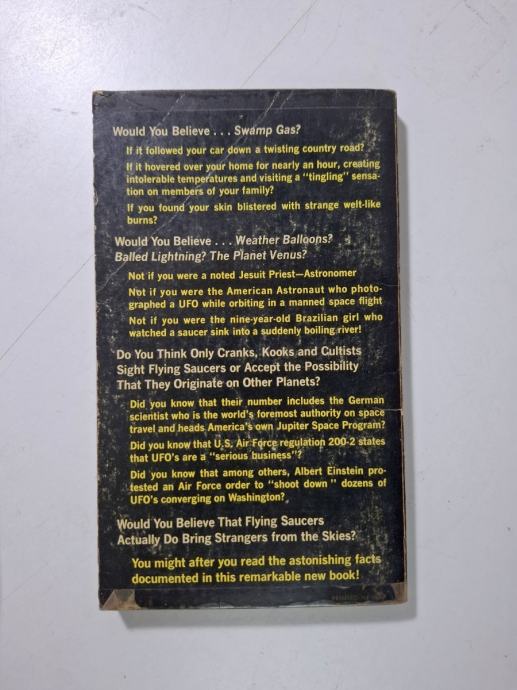 Would You Believe . . . Swamp Gas?
If it followed your car down a twisting country road?
If it hovered over your home for nearly an hour, creating
intolerable temperatures and visiting a "tingling" sensa-
tion on members of your family?
If you found your skin blistered with strange welt-like
burns?
Would You Believe . . . Weather Balloons?
Balled Lightning? The Planet Venus?
Not if you were a noted Jesuit Priest—Astronomer
Not if you were the American Astronaut who photo-
graphed a UFO while orbiting in a manned space flight
Not if you were the nine-year-old Brazilian girl who
watched a saucer sink into a suddenly boiling river!
Do You Think Only Cranks, Kooks and Cultists
Sight Flying Saucers or Accept the Possibility
That They Originate on Other Planets?
Did you know that their number includes the German
scientist who is the world's foremost authority on space
travel and heads America's own Jupiter Space Program?
Did you know that U.S. Air Force regulation 200-2 states
that UFO's are a "serious business"?
Did you know that among others, Albert Einstein pro-
tested an Air Force order to "shoot down " dozens of
UFO's converging on Washington?
Would You Believe That Flying Saucers
Actually Do Bring Strangers from the Skies?
You might after you read the astonishing facts
documented in this remarkable new book!